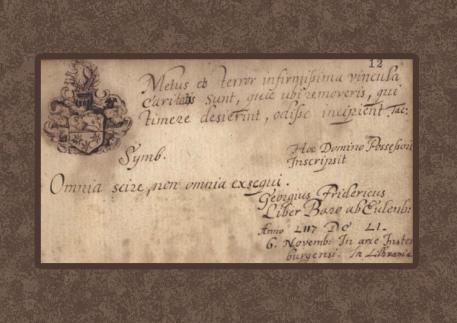 12
Metus et terror infirmissima vincula
caritatis sunt, quae ubi removeris, qui
timere desierint, odisse incipient. Tac:
Symb.
Omnia scire, non omnia exsequi.
Hoc Domino Possessori
Inscripsit
Georgius Fridericus
Liber Baro ab Eulenb:
Anno DC LI.
6. Novemb: In arce Inster
burgensi.